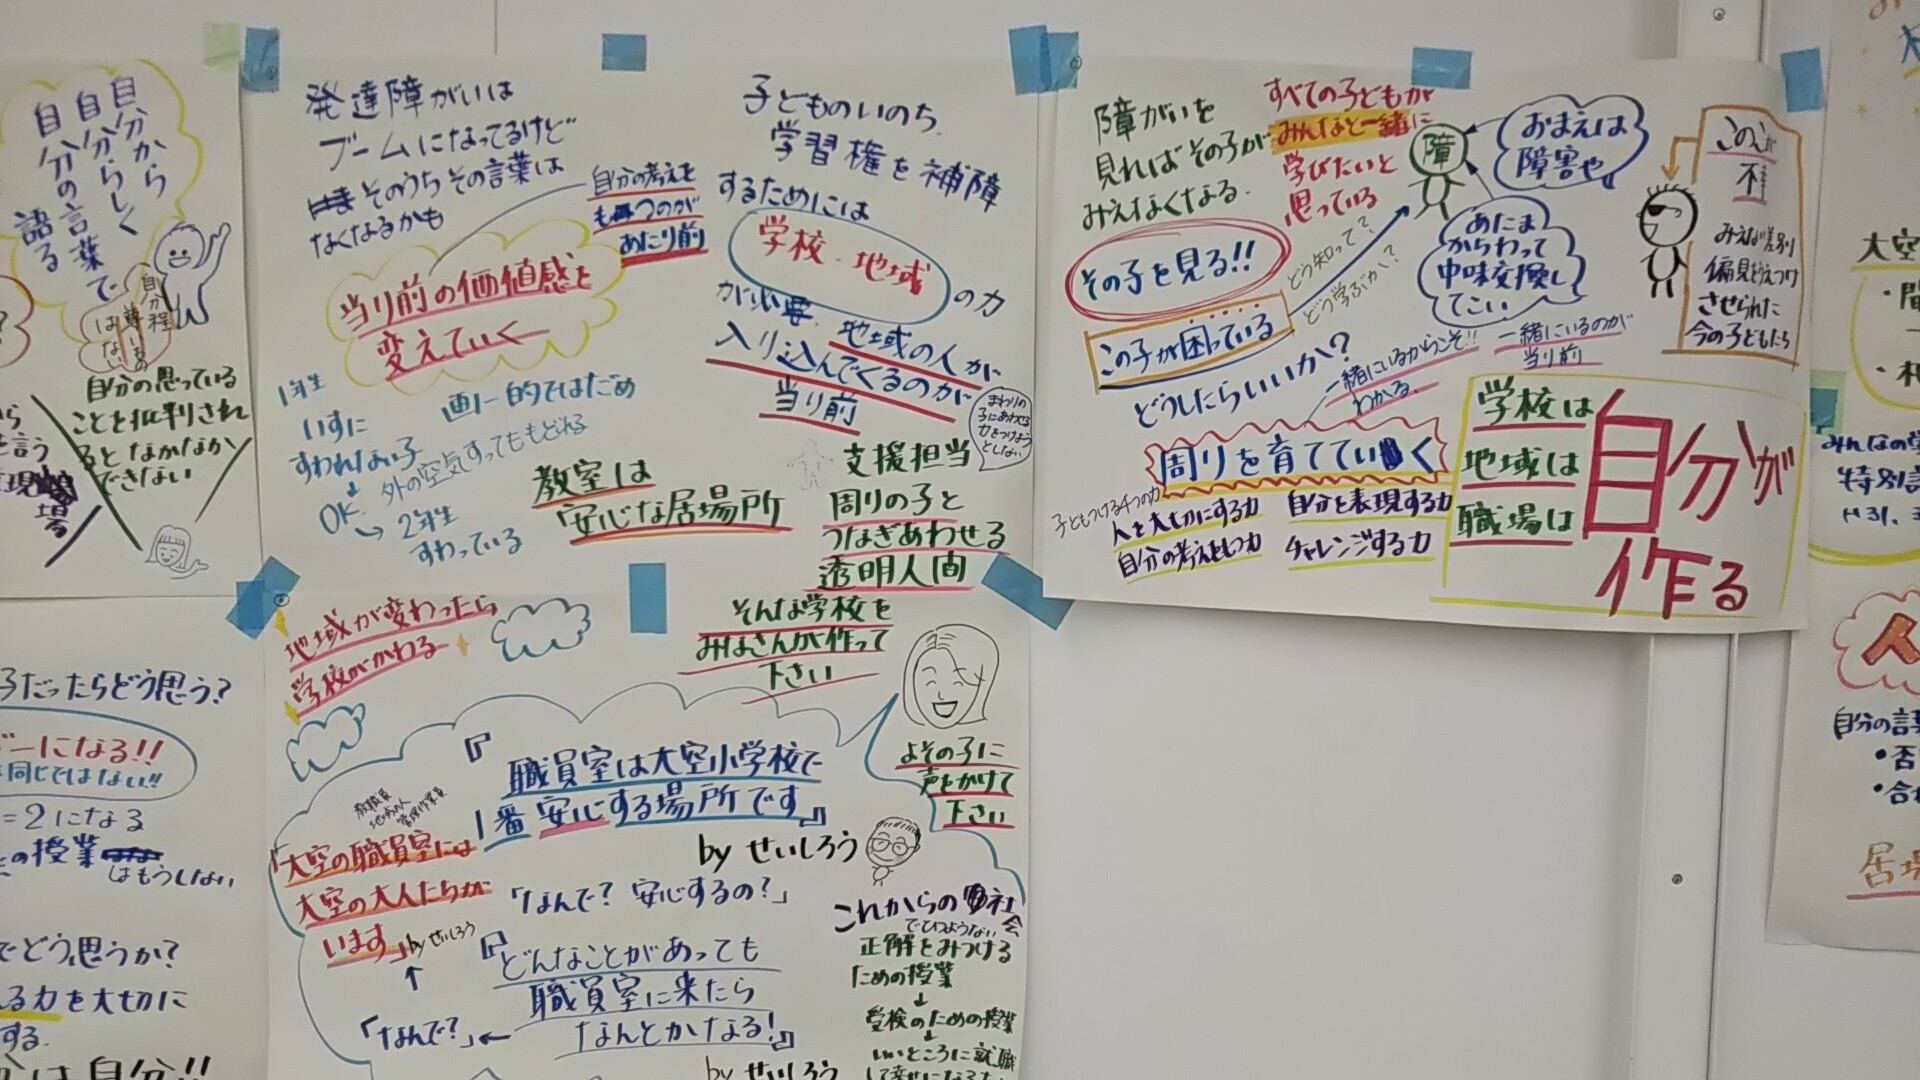 自分から
自分らしく
自分の言葉で
語る
自分の思っている
ことを批判され
るとなかなか
できない
発達障がいは
ブームになってるけど
そのうちその言葉は
なくなるかも
自分の考えを
もつのが
あたり前
当り前の価値感を
変えていく
1年生
いすに
すわれない子
↓
OK
外の空気すってももどれる
→2年生
すわっている
画一的ではだめ
教室は
安心な居場所
子どものいのち
学習権を補障
するためには
学校・地域
の力
が必要
地域の人が
入り込んでくるのが
当り前
まわりの
子にあわせる
力をつけよう
としない
支援担当
周りの子と
つなぎあわせる
透明人間
そんな学校を
みなさんが作って
下さい
障がいを
見ればその子が
みえなくなる.
すべての子どもが
みんなと一緒に
学びたいと
思っている
障
おまえは
障害や
あたま
からわって
中味交換し
てこい
その子を見る!!
この子が困っている
どう知って?
どう学ぶか?
どうしたらいいか?
一緒にいるからこそ!!
わかる.
一緒にいるのが
当り前
周りを育てていく
子どもつける4つの力
人を大切にする力
自分の考えをもつ力
自分を表現する力
チャレンジする力
みえない差別
偏見をうえつけ
させられた
今の子どもたち
学校は
地域は
職場は
自分が
作る
地域が変わったら
学校がかわる
『職員室は大空小学校で
1番安心する場所です』
by せいしろう
教職員
地域の人
管理作業員
「大空の職員室には
大空の大人たちが
います」by せいしろう
↑
「なんで? 安心するの?」
『どんなことがあっても
職員室に来たら
なんとかなる!』
「なんで?」←
by せいしろう
よその子に
声をかけて
下さい
これからの社会
でひつようない
正解をみつける
ための授業
↓
受検のための授業
↓
いいところに就職
子だったらどう思う?
ーになる!!
同じではない!!
=2になる
の授業
はもうしない
でどう思うか?
る力を大切に
する.
は自分!!
大空
みんなの学
特別
人
自分の
・否
・合
居場